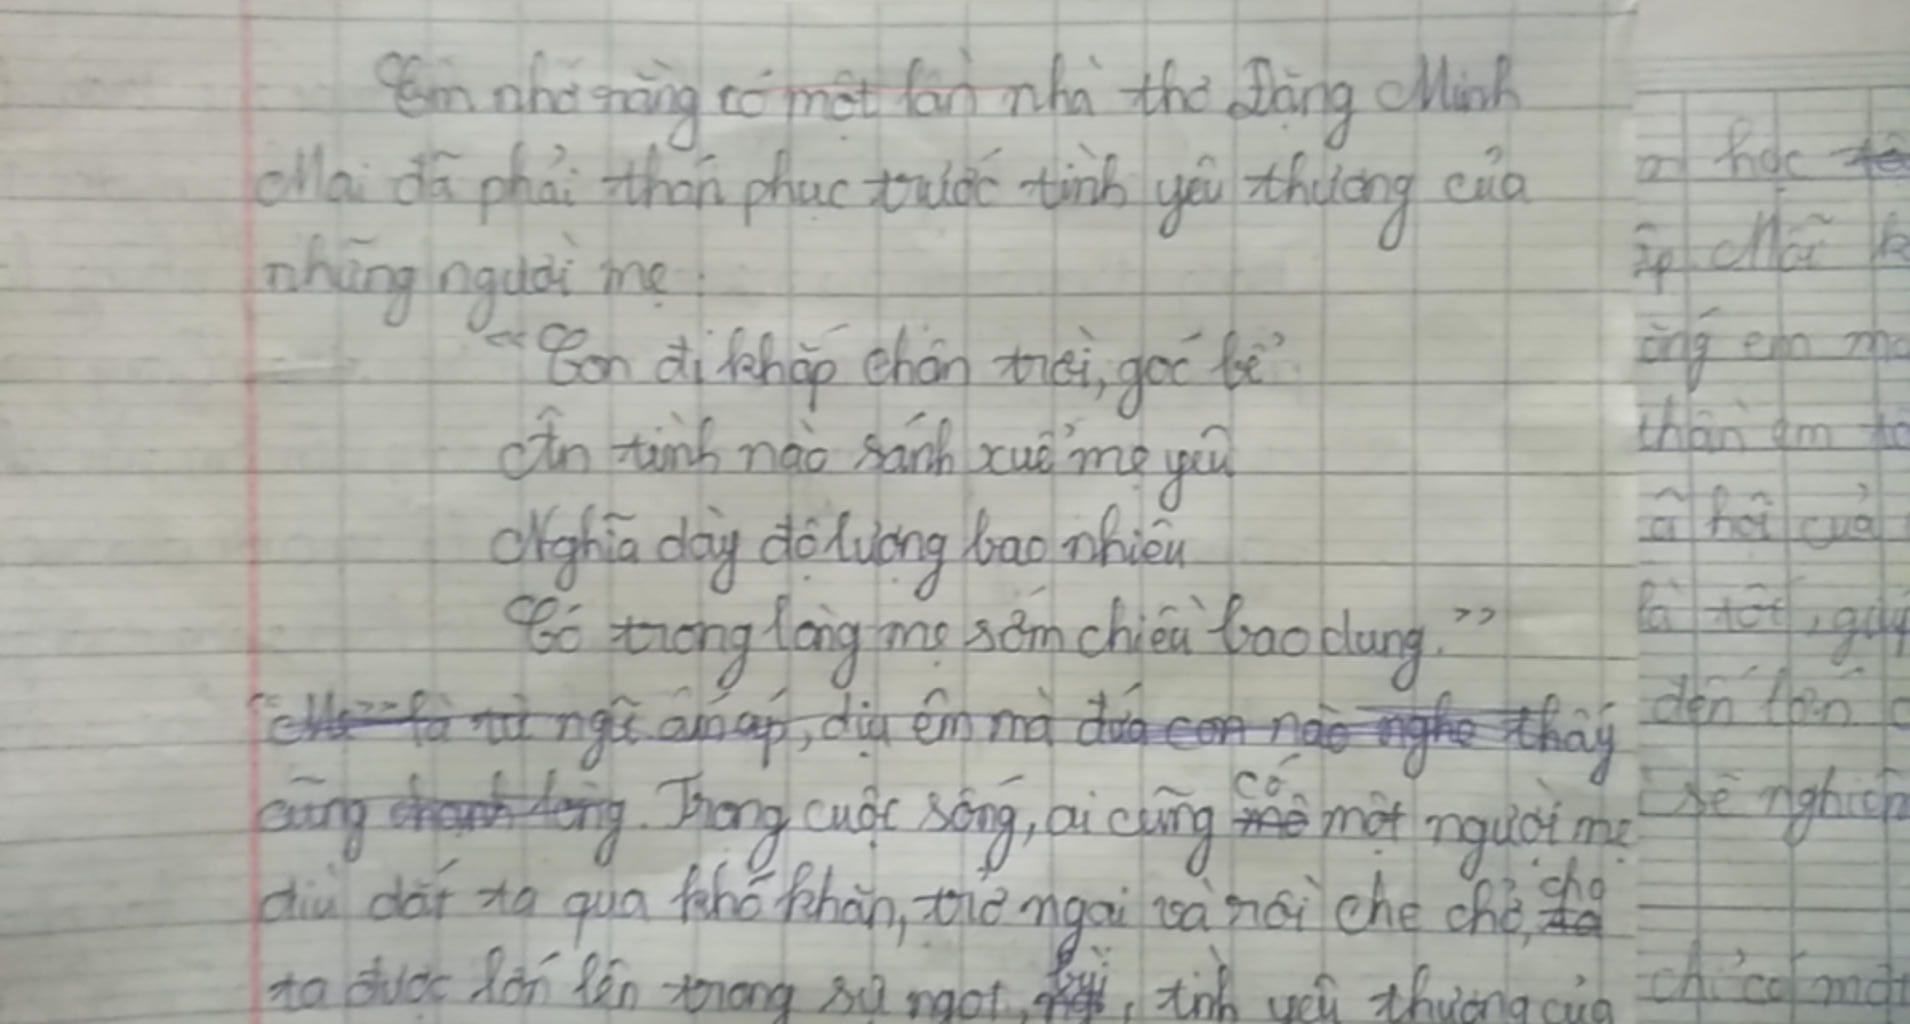 Em nhớ rằng có một lần nhà thơ Đặng Minh
Mai đã phải thán phục trước tình yêu thương của
những người mẹ:
"Con đi khắp chân trời, góc bể
Ân tình nào sánh xuể mẹ yêu
Nghĩa dày độ lượng bao nhiêu
Có trong lòng mẹ sớm chiều bao dung."
"Mẹ" là từ ngữ ấm áp, dịu êm mà đứa con nào nghe thấy
cũng chạnh lòng. Trong cuộc sống, ai cũng có một người mẹ
dìu dắt ta qua khó khăn, trở ngại và rồi che chở, cho
ta được lớn lên trong sự ngọt, tình yêu thương của
học
Mỗi
ông em
thân em
hội của
là tốt, quý
đến lớn
sẽ nghiên
chỉ có một